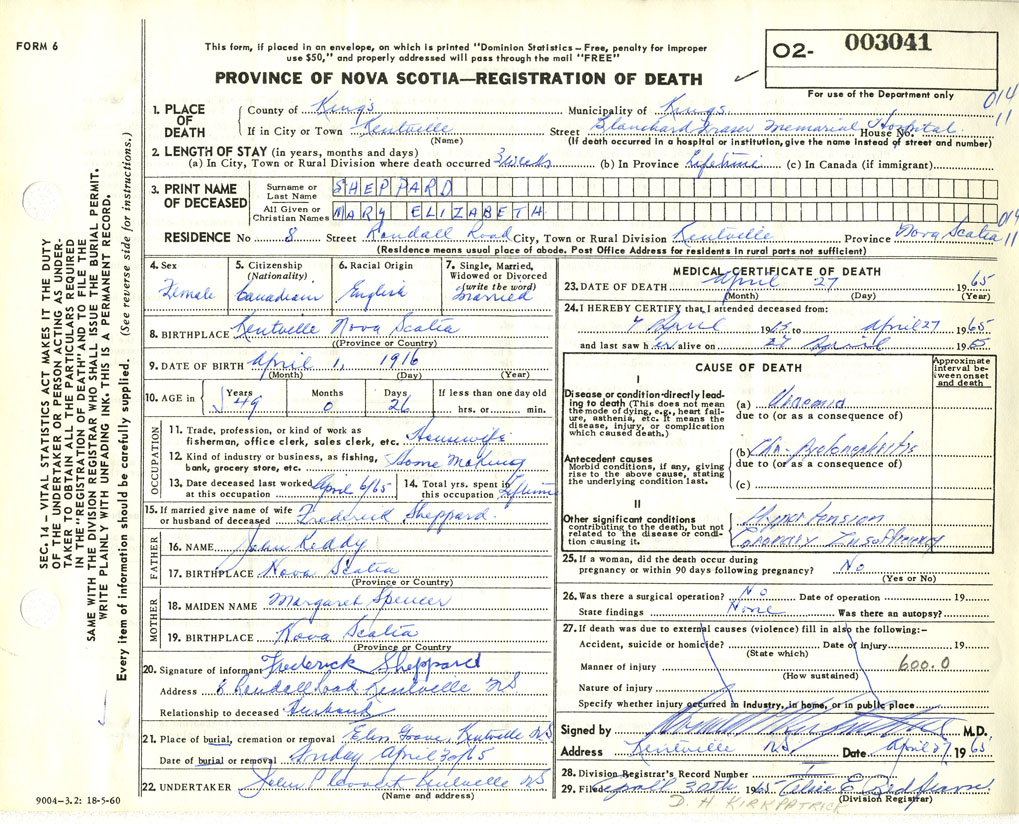 FORM 6
This form, if placed in an envelope, on which is printed "Dominion Statistics – Free, penalty for improper
use $50," and properly addressed will pass through the mail "FREE"
PROVINCE OF NOVA SCOTIA—REGISTRATION OF DEATH
O2- 003041
For use of the Department only
014
11
1. PLACE OF DEATH
County of Kings Municipality of Kings
If in City or Town Kentville Street Blanchard Fraser Memorial Hospital House No.
(Name) (If death occurred in a hospital or institution, give the name instead of street and number)
2. LENGTH OF STAY (in years, months and days)
(a) In City, Town or Rural Division where death occurred 3 weeks (b) In Province Lifetime (c) In Canada (if immigrant)
3. PRINT NAME OF DECEASED
Surname or Last Name SHEPPARD
All Given or Christian Names MARY ELIZABETH
014
11
RESIDENCE No 8 Street Randall Road City, Town or Rural Division Kentville Province Nova Scotia
(Residence means usual place of abode. Post Office Address for residents in rural parts not sufficient)
4. Sex Female
5. Citizenship (Nationality) Canadian
6. Racial Origin English
7. Single, Married, Widowed or Divorced (write the word) Married
8. BIRTHPLACE Kentville Nova Scotia
(Province or Country)
9. DATE OF BIRTH April 1, 1916
(Month) (Day) (Year)
10. AGE in Years 49 Months 0 Days 26 If less than one day old hrs. or min.
OCCUPATION
11. Trade, profession, or kind of work as fisherman, office clerk, sales clerk, etc. Housewife
12. Kind of industry or business, as fishing, bank, grocery store, etc. Home Making
13. Date deceased last worked at this occupation April 6/65
14. Total yrs. spent in this occupation Lifetime
15. If married give name of wife or husband of deceased Frederick Sheppard
FATHER
16. NAME John Reddy
17. BIRTHPLACE Nova Scotia
(Province or Country)
MOTHER
18. MAIDEN NAME Margaret Spencer
19. BIRTHPLACE Nova Scotia
(Province or Country)
20. Signature of informant Frederick Sheppard
Address 8 Randall Road Kentville NS
Relationship to deceased Husband
21. Place of burial, cremation or removal Elm Grove, Kentville NS
Date of burial or removal April 30/65
22. UNDERTAKER John P Kentville NS
(Name and address)
9004–3.2: 18-5-60
MEDICAL CERTIFICATE OF DEATH
23. DATE OF DEATH April 27 1965
(Month) (Day) (Year)
24. I HEREBY CERTIFY that I attended deceased from:
7 April 1965 to April 27 1965
and last saw her alive on 27 April 1965
CAUSE OF DEATH
Approximate interval between onset and death
I
Disease or condition directly leading to death (This does not mean the mode of dying, e.g., heart failure, asthenia, etc. It means the disease, injury, or complication which caused death.)
(a) Uraemia
due to (or as a consequence of)
Antecedent causes
Morbid conditions, if any, giving rise to the above cause, stating the underlying condition last.
(b) Chr. Pyelonephritis
due to (or as a consequence of)
(c)
II
Other significant conditions contributing to the death, but not related to the disease or condition causing it.
Hypertension
Coronary Insufficiency
25. If a woman, did the death occur during pregnancy or within 90 days following pregnancy? No
(Yes or No)
26. Was there a surgical operation? No Date of operation 19
State findings None Was there an autopsy?
27. If death was due to external causes (violence) fill in also the following:–
Accident, suicide or homicide? Date of injury 19
(State which)
Manner of injury 600.0
(How sustained)
Nature of injury
Specify whether injury occurred in industry, in home, or in public place
Signed by M.D.
Address Kentville NS Date April 27 1965
28. Division Registrar's Record Number
29. Filed April 30th 1965
D. H KIRKPATRICK
(Division Registrar)
SEC. 14 – VITAL STATISTICS ACT MAKES IT THE DUTY
OF THE UNDERTAKER OR PERSON ACTING AS UNDER-
TAKER TO OBTAIN ALL THE PARTICULARS REQUIRED
IN THE "REGISTRATION OF DEATH" AND TO FILE THE
SAME WITH THE DIVISION REGISTRAR WHO SHALL ISSUE THE BURIAL PERMIT.
WRITE PLAINLY WITH UNFADING INK. THIS IS A PERMANENT RECORD.
Every item of information should be carefully supplied. (See reverse side for instructions.)